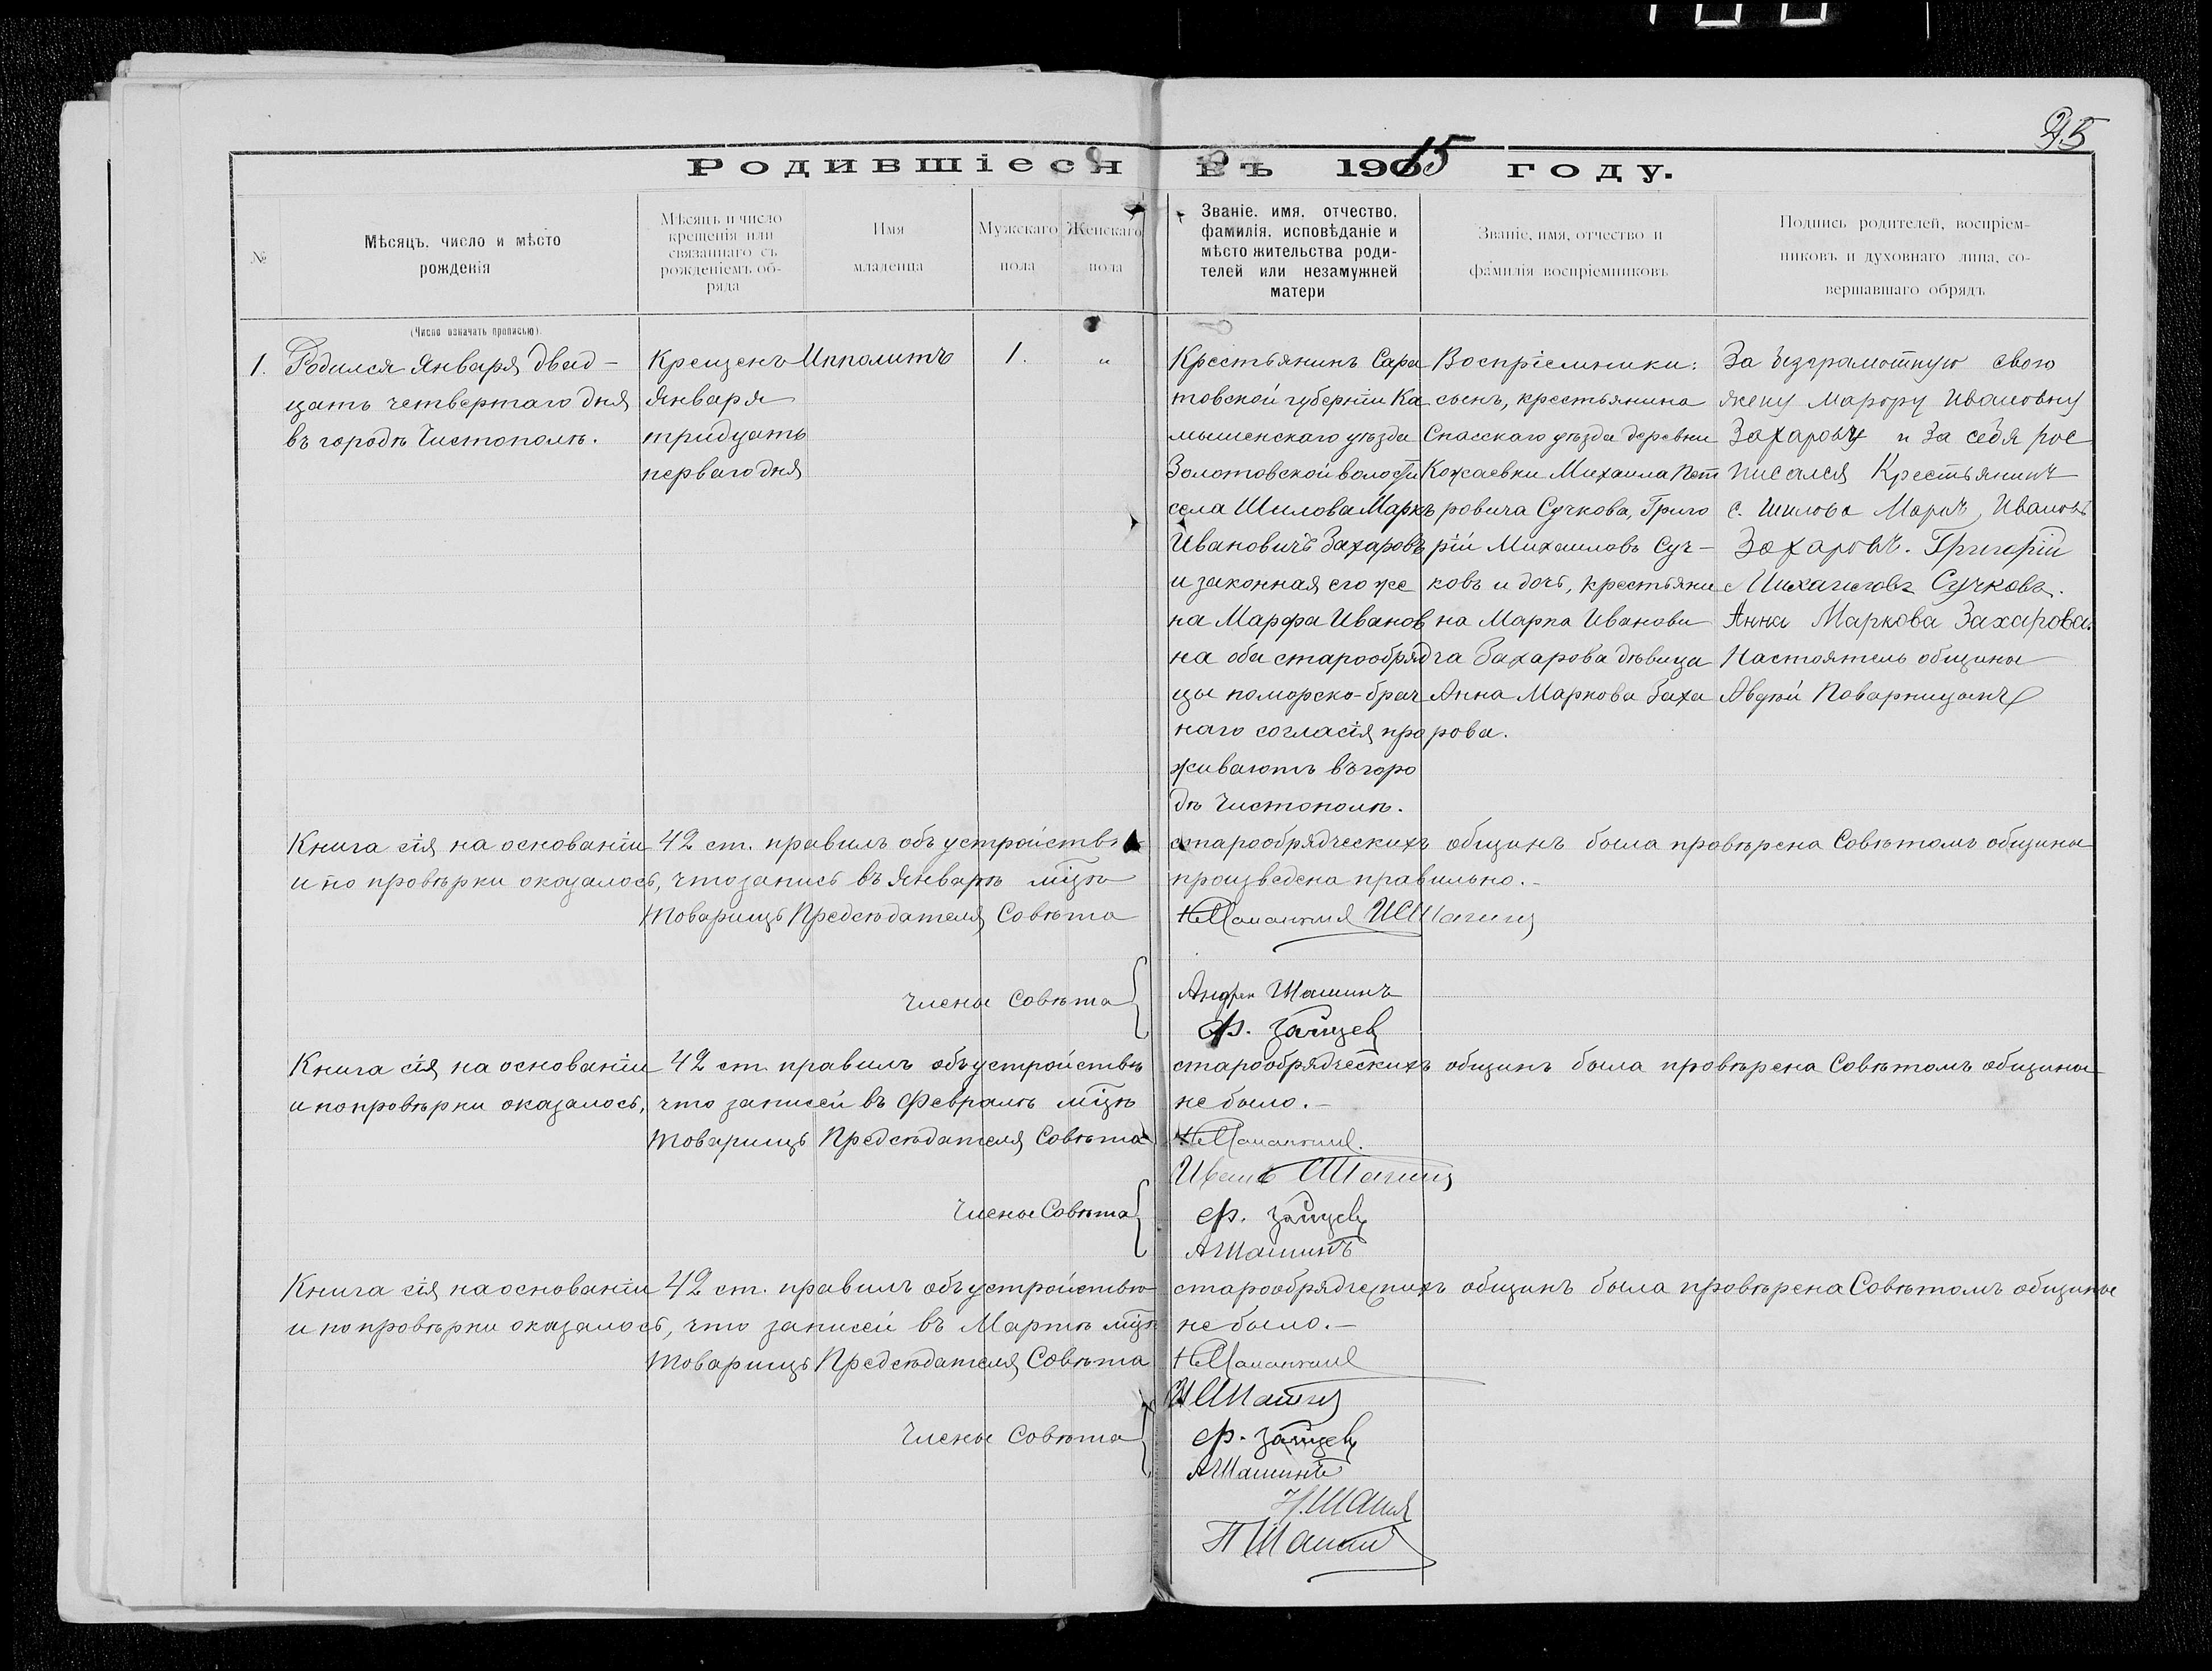 95
Родившіеся въ 1915 году.
№
Мѣсяцъ, число и мѣсто
рожденія
Мѣсяцъ и число
крещенія или
связаннаго съ
рожденіемъ об-
ряда
Имя
младенца
Мужскаго
пола
Женскаго
пола
Званіе, имя, отчество,
фамилія, исповѣданіе и
мѣсто жительства роди-
телей или незамужней
матери
Званіе, имя, отчество и
фамилія воспріемниковъ
Подпись родителей, воспріем-
никовъ и духовнаго лица, со-
вершавшаго обрядъ
(Число означать прописью).
1.
Родился Января двад-
цать четвертаго дня
въ городѣ Чистополѣ.
Крещенъ
Января
тридцать
перваго дня
Ипполитъ
1.
"
Крестьянинъ Сара
товской губерніи Ка
мышенскаго уѣзда
Золотовской волости
села Шилова Маркъ
Ивановичъ Захаровъ
и законная его же
на Марфа Иванов
на оба старообряд
цы поморско-брач
наго согласія про
живаютъ въ горо
дѣ Чистополѣ.
Воспріемники:
сынъ, крестьянина
Спасскаго уѣзда деревни
Кожаевки Михаила Пет
ровича Сучкова, Григо
рій Михаиловъ Суч-
ковъ и дочь, крестьяни
на Марка Иванови
ча Захарова дѣвица
Анна Маркова Заха
рова.
За безграмотную свою
жену Марфу Ивановну
Захарову и за себя рос
писался Крестьянинъ
с. Шилова Маркъ Ивановъ
Захаровъ. Григорій
Михаиловъ Сучковъ.
Анна Маркова Захарова.
Настоятель общины
Авдѣй Поварницынъ
Книга сія на основаніи 42 ст. правилъ объ устройствѣ старообрядческихъ общинъ была провѣрена Совѣтомъ общины
и по провѣрки оказалось, что запись въ Январѣ мцѣ произведена правильно.-
Товарищъ Предсѣдателя Совѣта
Члены Совѣта
Андрей Шашинъ
Ф. Зайцев
Книга сія на основаніи 42 ст. правилъ объ устройствѣ старообрядческихъ общинъ была провѣрена Совѣтомъ общины
и по провѣрки оказалось, что записей въ Февралѣ мцѣ не было.-
Товарищъ Предсѣдателя Совѣта
Иванъ Шашин
Члены Совѣта
Ф. Зайцев
АШашинъ
Книга сія на основаніи 42 ст. правилъ объ устройствѣ старообрядческихъ общинъ была провѣрена Совѣтомъ общины
и по провѣрки оказалось, что записей въ Мартѣ мцѣ не было.-
Товарищъ Предсѣдателя Совѣта
ИШашин
Члены Совѣта
Ф. Зайцев
АШашинъ